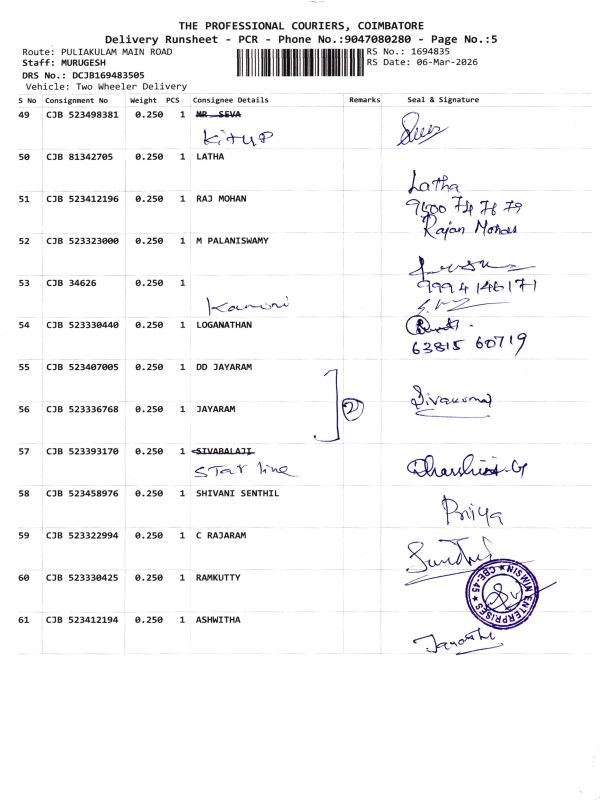 THE PROFESSIONAL COURIERS, COIMBATORE
Delivery Runsheet - PCR - Phone No.:9047080280 - Page No.:5
Route: PULIAKULAM MAIN ROAD RS No.: 1694835
Staff: MURUGESH RS Date: 06-Mar-2026
DRS No.: DCJB169483505
Vehicle: Two Wheeler Delivery
S No Consignment No Weight PCS Consignee Details Remarks Seal & Signature
49 CJB 523498381 0.250 1 MR SEVA
Kitup
50 CJB 81342705 0.250 1 LATHA
Latha
51 CJB 523412196 0.250 1 RAJ MOHAN
9400 74 76 79
Rajan Mohan
52 CJB 523323000 0.250 1 M PALANISWAMY
53 CJB 34626 0.250 1
99994 146171
Kamini
54 CJB 523330440 0.250 1 LOGANATHAN
63815 60719
55 CJB 523407005 0.250 1 DD JAYARAM
2
Sivakumar
56 CJB 523336768 0.250 1 JAYARAM
57 CJB 523393170 0.250 1 SIVABALAJI
STar line
58 CJB 523458976 0.250 1 SHIVANI SENTHIL
Priya
59 CJB 523322994 0.250 1 C RAJARAM
60 CJB 523330425 0.250 1 RAMKUTTY
NIMSIN ENTERPRISES ★ CBE-45 ★
61 CJB 523412194 0.250 1 ASHWITHA